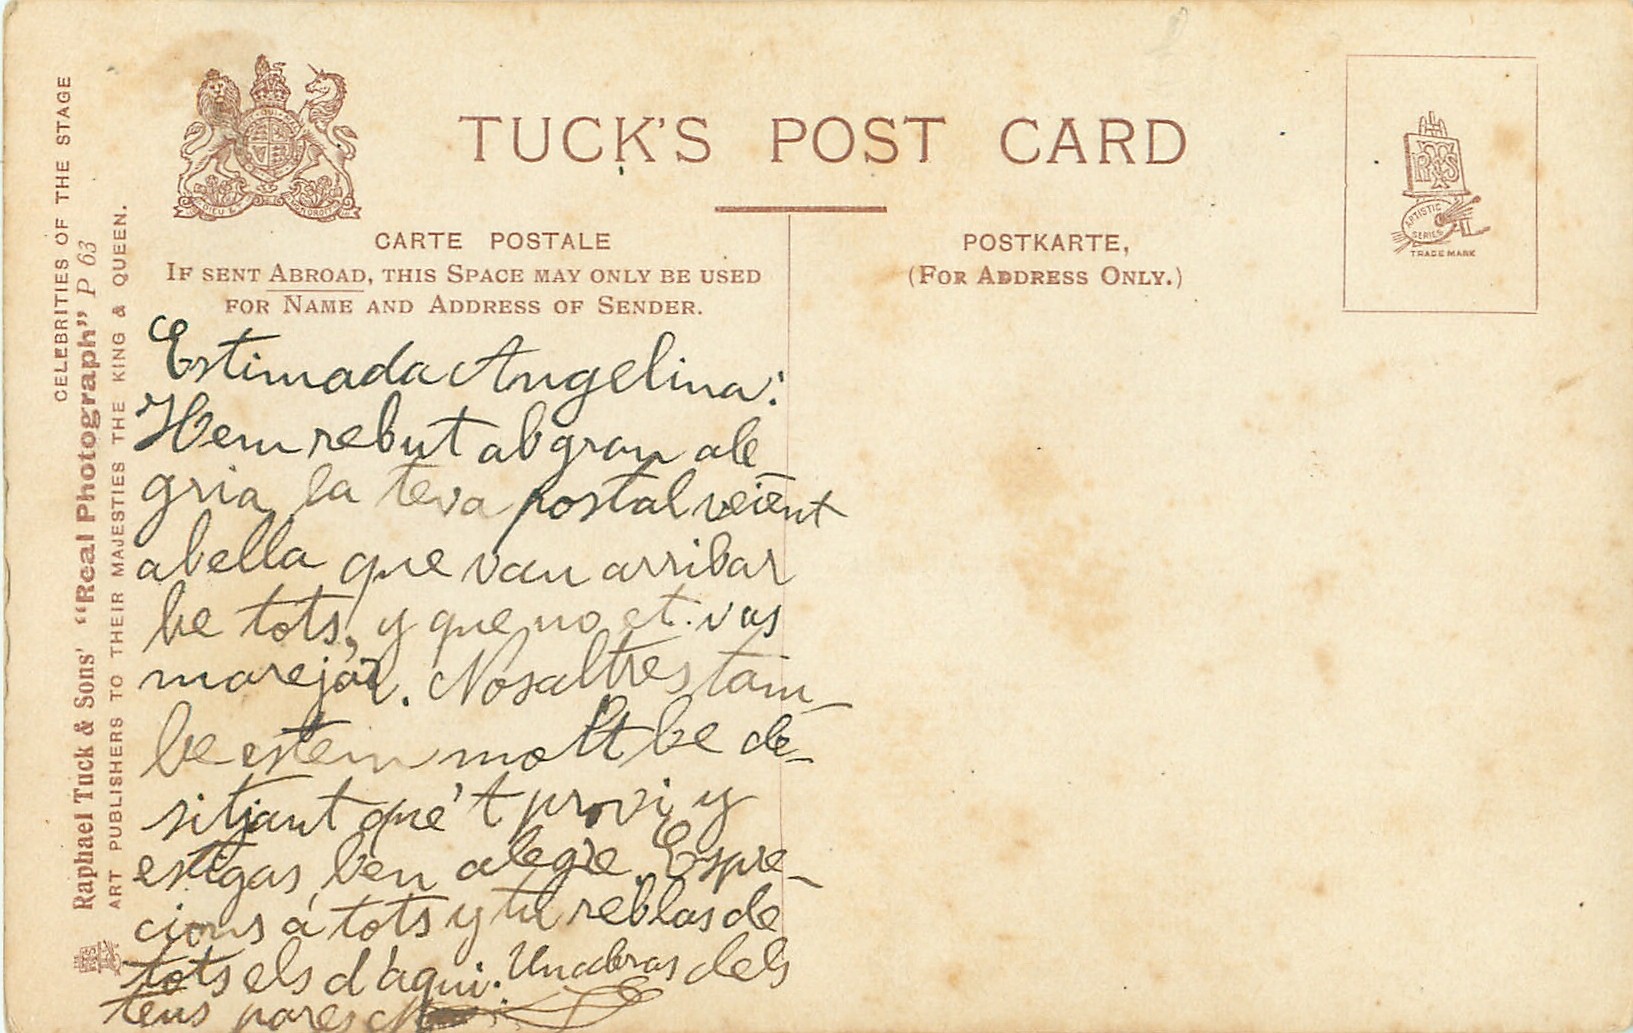 CELEBRITIES OF THE STAGE
Raphael Tuck & Sons' "Real Photograph" P 63
ART PUBLISHERS TO THEIR MAJESTIES THE KING & QUEEN.
TUCK'S POST CARD
CARTE POSTALE
IF SENT ABROAD, THIS SPACE MAY ONLY BE USED
FOR NAME AND ADDRESS OF SENDER.
POSTKARTE,
(FOR ADDRESS ONLY.)
RTS
ARTISTIC
SERIES
TRADE MARK
Estimada Angelina:
Hem rebut ab gran ale
gria la teva postal veient
abella que van arribar
be tots, y que no et vas
marejar. Nosaltres tam-
be estem molt be de-
sitjant que't provi y
estigas ben alegre. Espre-
cions á tots y tu reblas de
tots els d'aqui. Una abras dels
teus pares